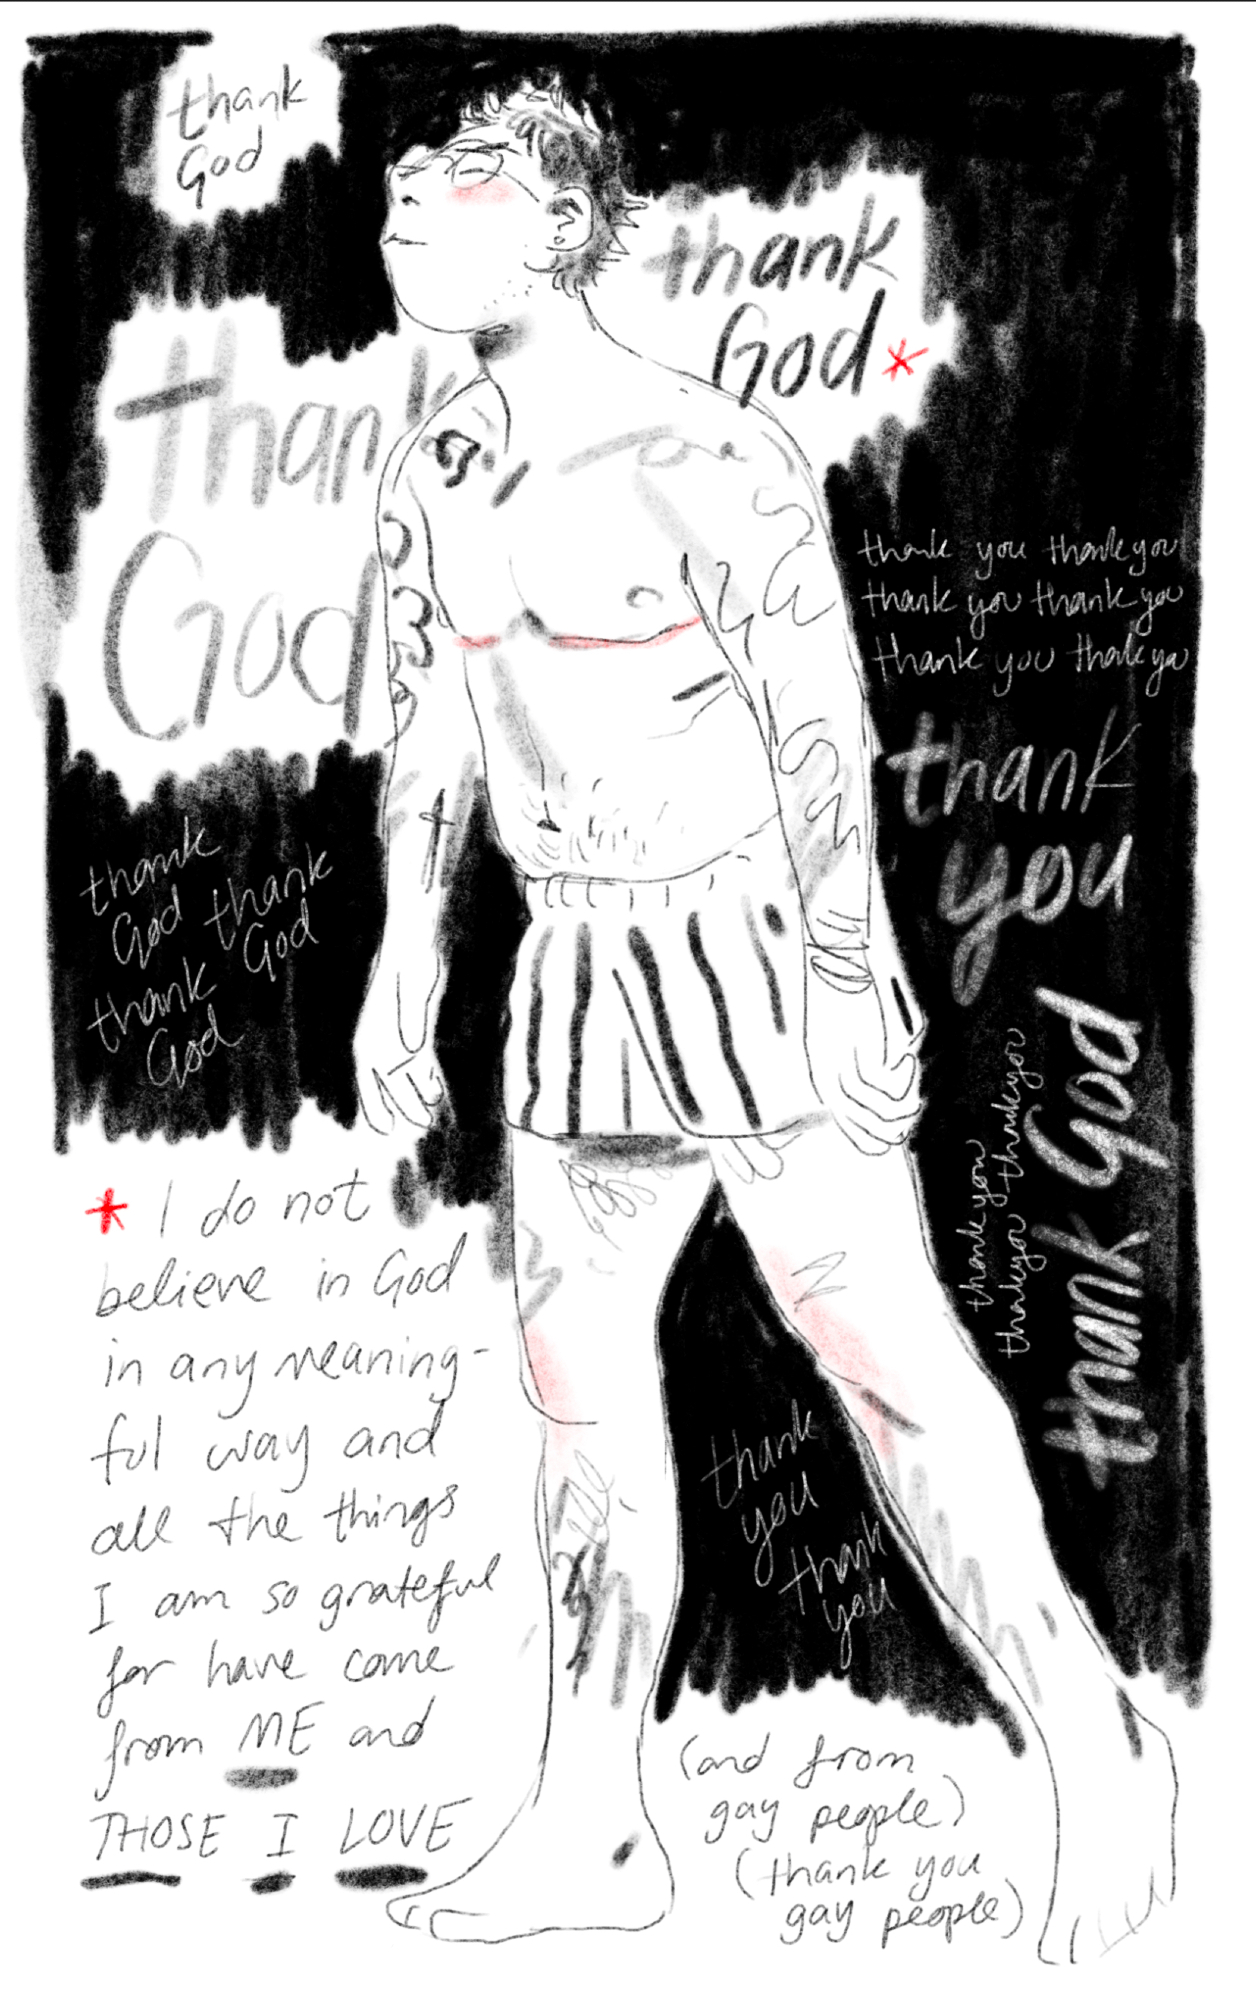 thank
God
thank
God*
thank
God
thank you thankyou
thank you thank you
thank you thank ya
thank
you
thank
God thank
God
thank
God
thank God
thank you thankyou
thankyou thankyou
* I do not
believe in God
in any meaning-
ful way and
all the things
I am so grateful
for have come
from ME and
THOSE I LOVE
thank
you
thank
you
(and from
gay people)
(thank you
gay people)